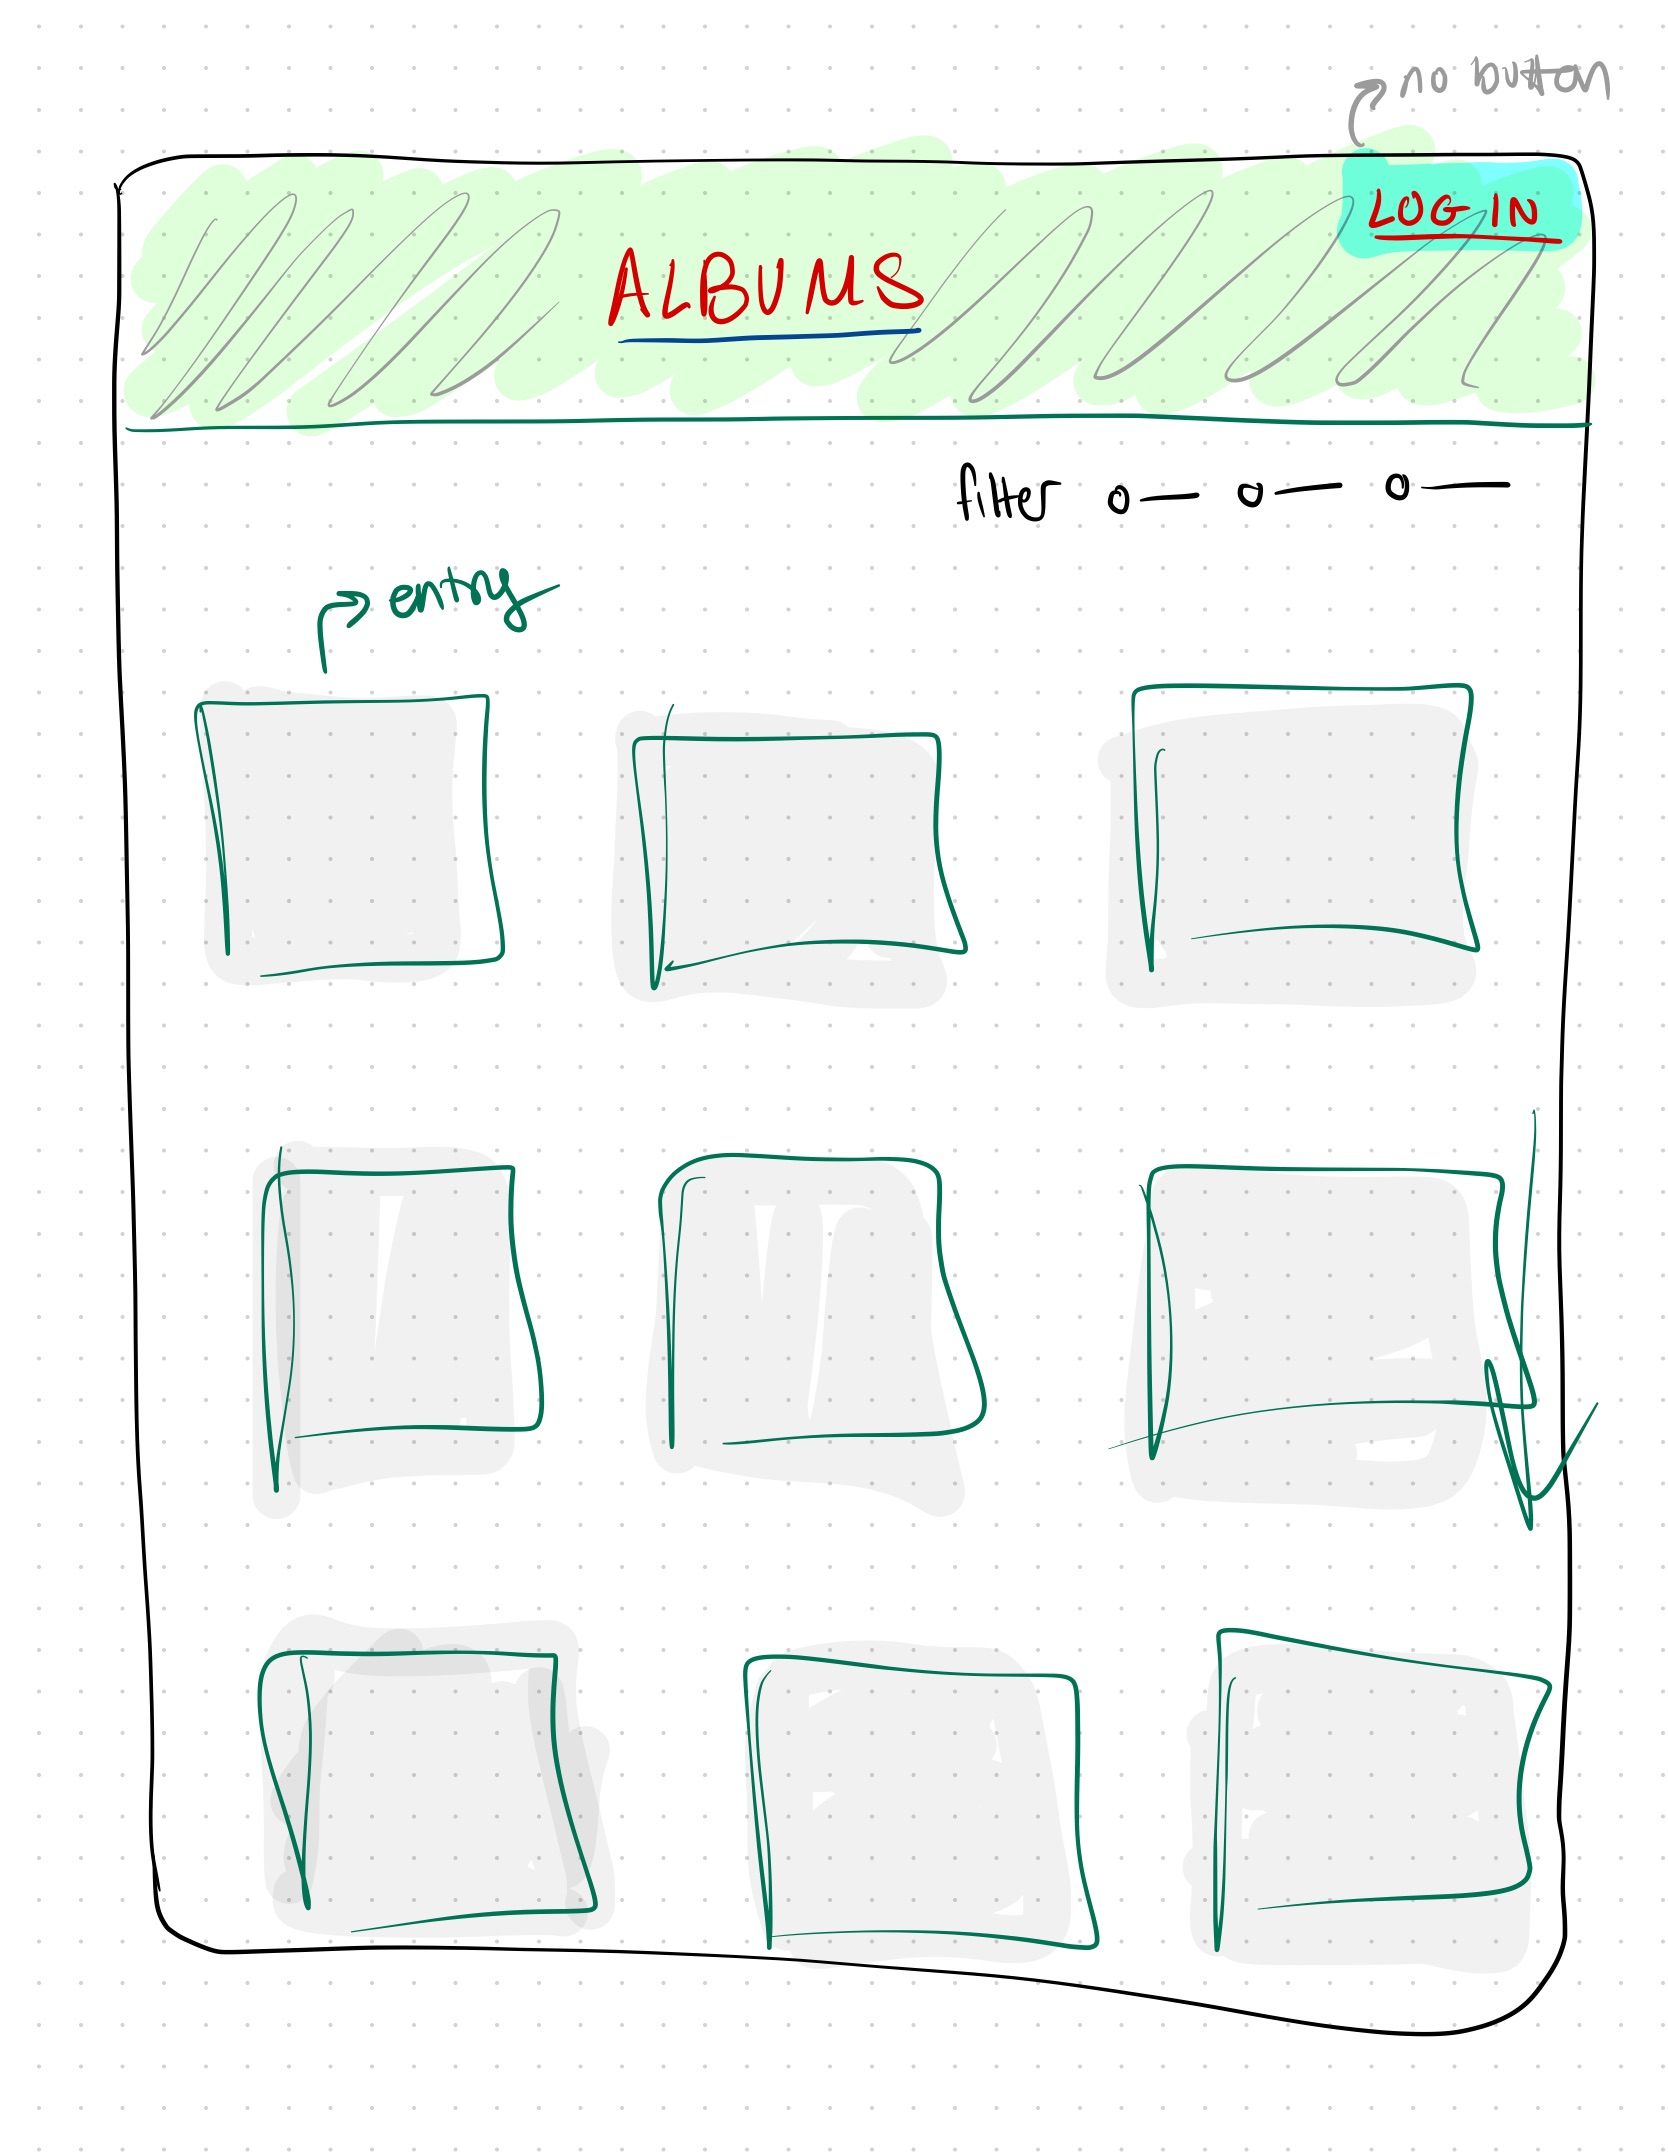 no button
LOG IN
ALBUMS
filter
entry